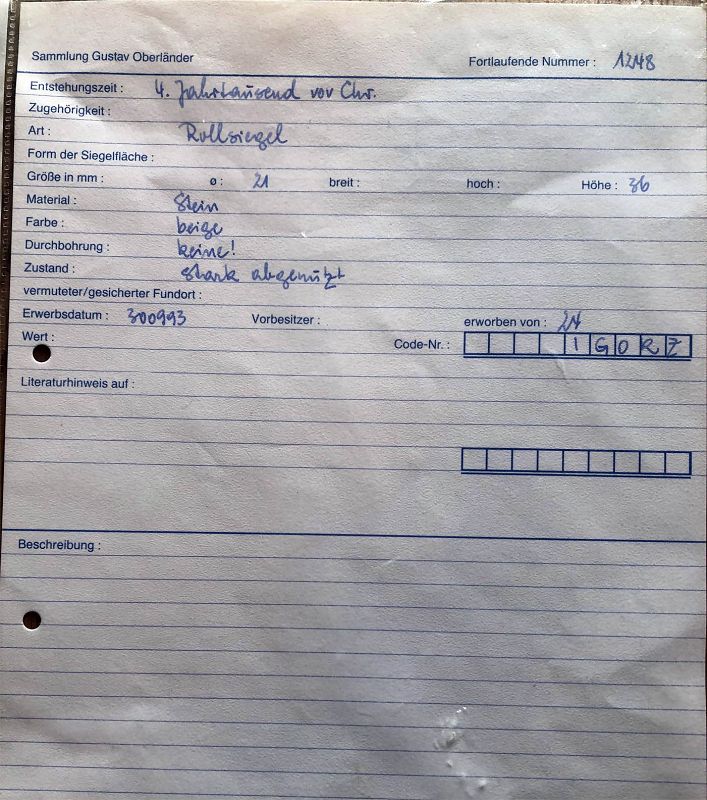 Sammlung Gustav Oberländer Fortlaufende Nummer : 1248
Entstehungszeit : 4. Jahrtausend vor Chr.
Zugehörigkeit :
Art : Rollsiegel
Form der Siegelfläche :
Größe in mm : ø : 21 breit : hoch : Höhe : 36
Material : Stein
Farbe : beige
Durchbohrung : keine!
Zustand : stark abgenützt
vermuteter/gesicherter Fundort :
Erwerbsdatum : 300993 Vorbesitzer : erworben von :
Wert : Code-Nr. : I G O R Z
Literaturhinweis auf :
Beschreibung :